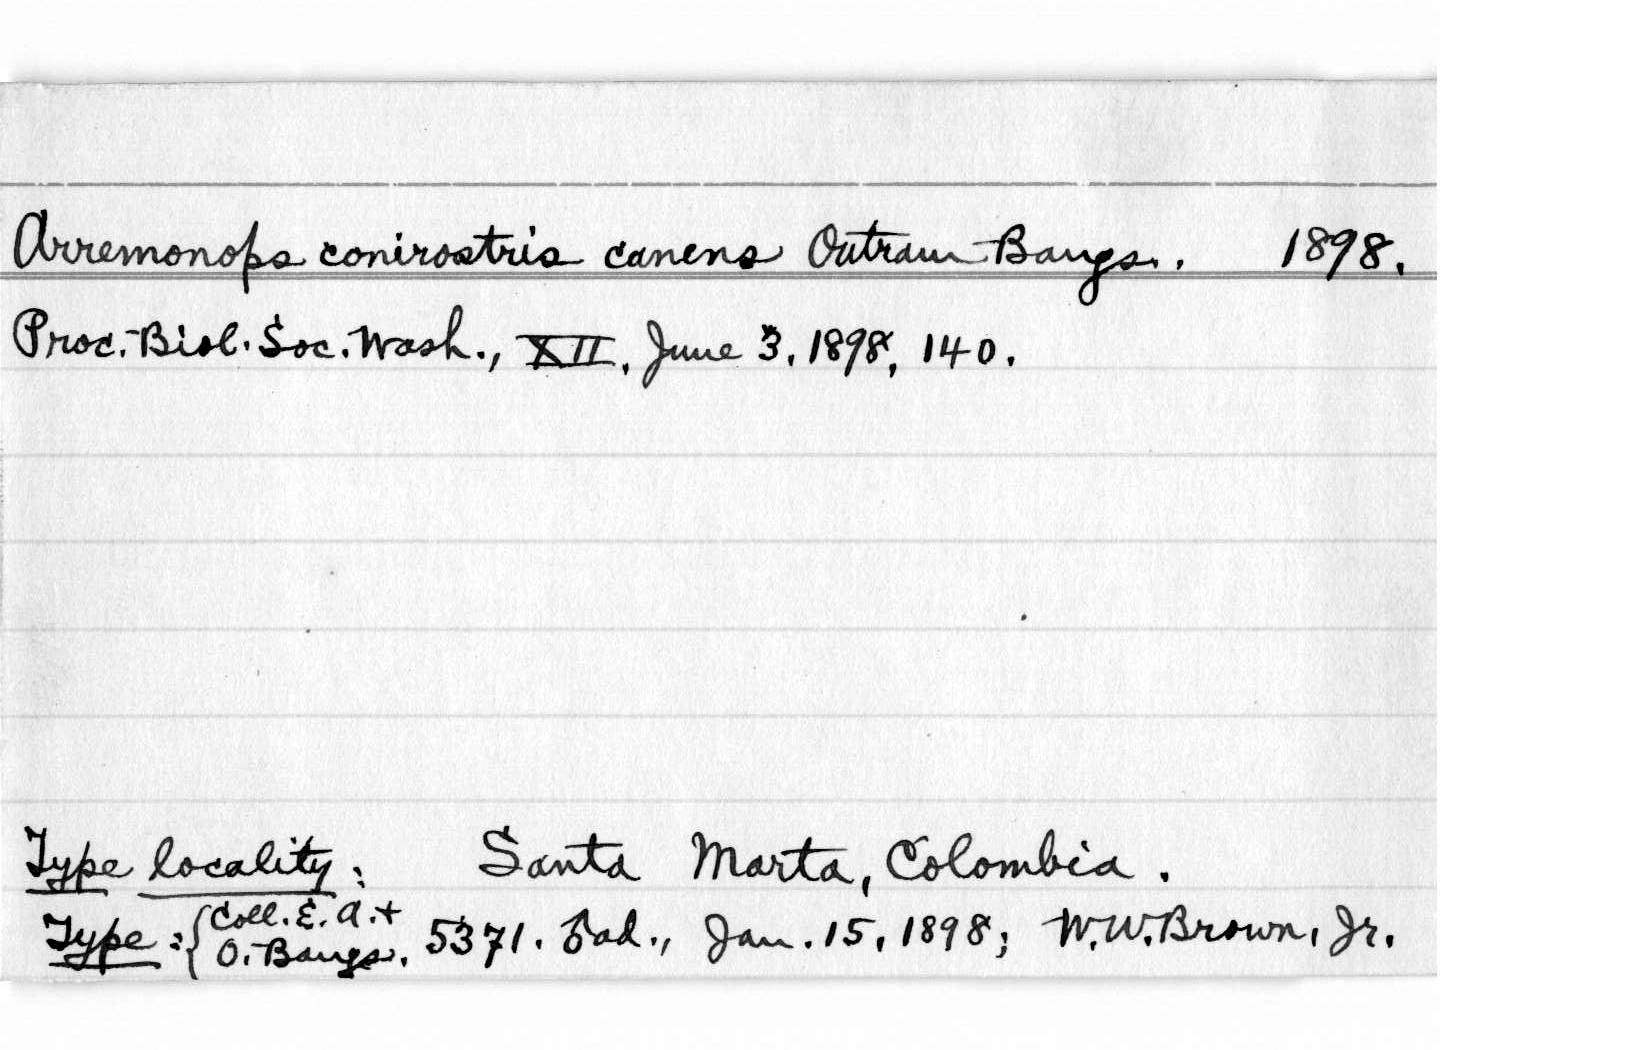 Arremonops conirostris canens Outram Bangs. 1898.
Proc. Biol. Soc. Wash., XII, June 3, 1898, 140.
Type locality: Santa Marta, Colombia.
Type: { Coll. E. A. +
O. Bangs. 5371. ♂ ad., Jan. 15, 1898; W. W. Brown, Jr.